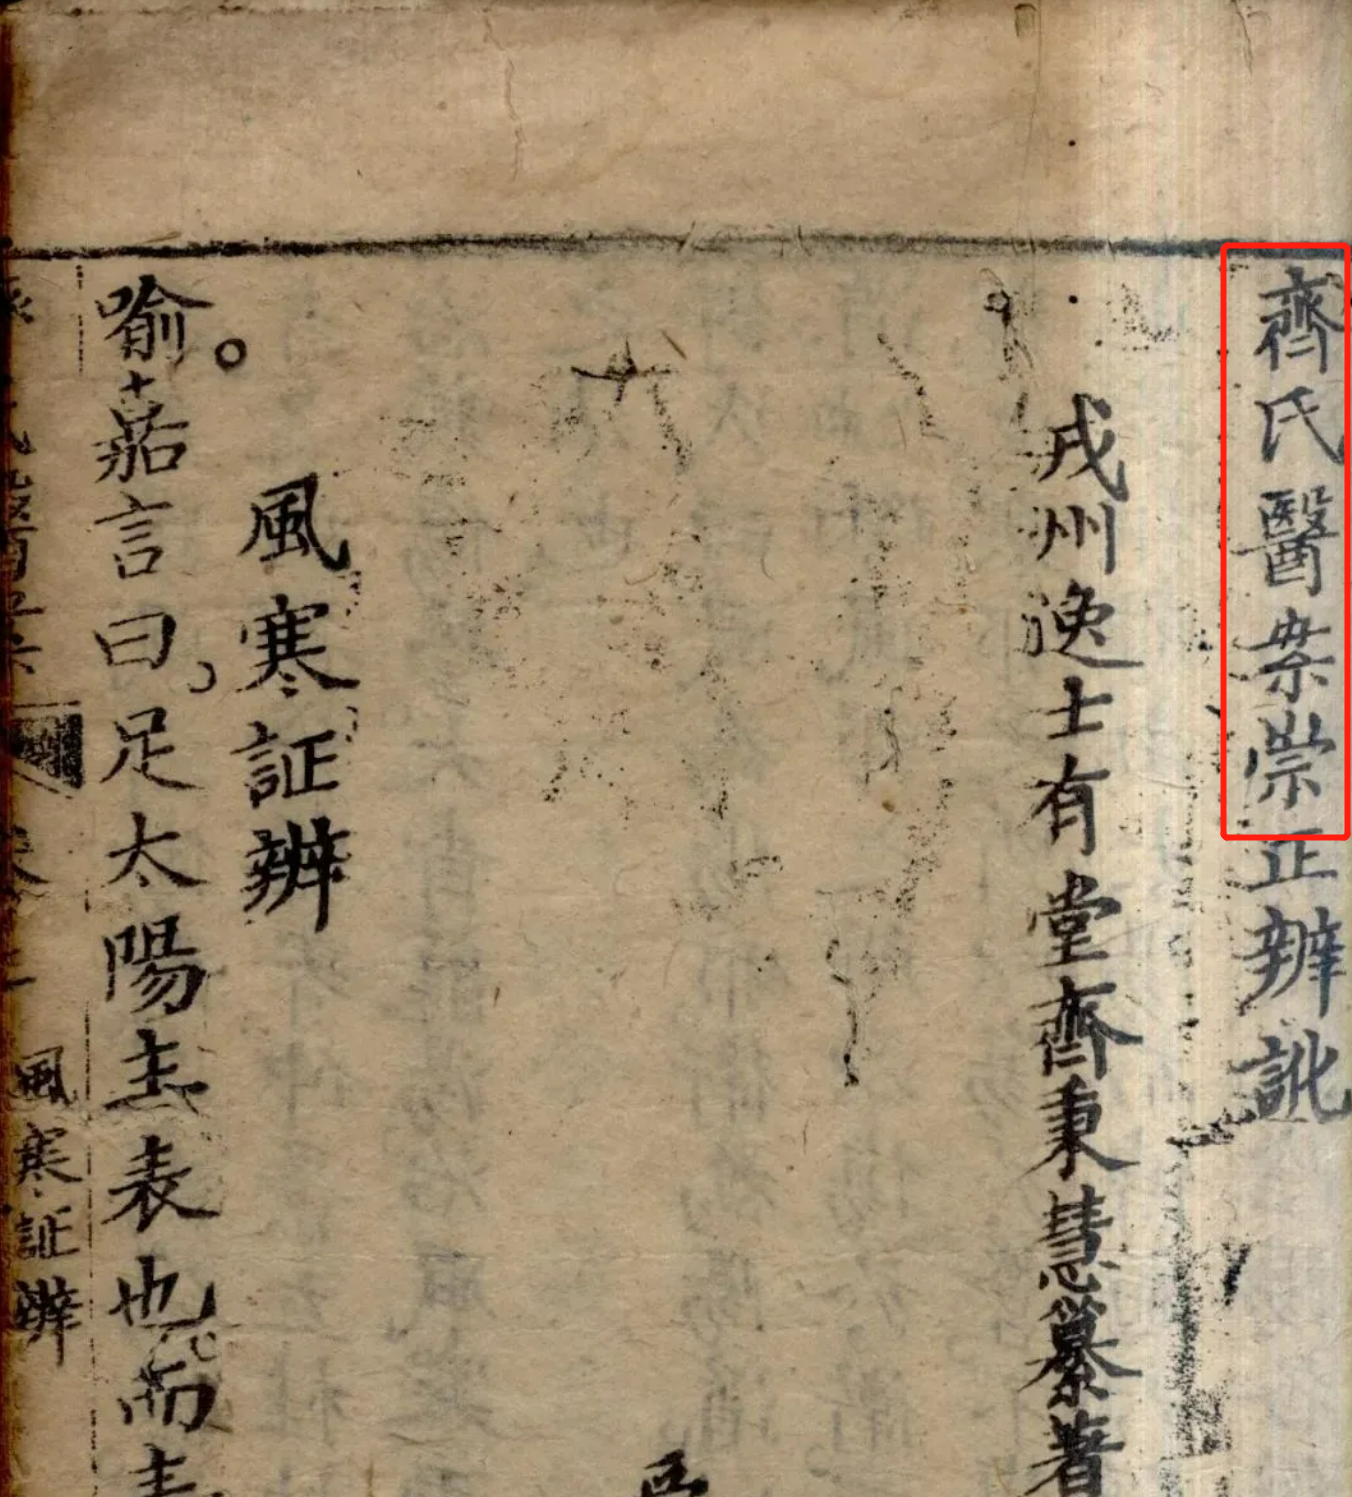 齊氏醫案崇正辨訛
戎州逸士有堂齊秉慧纂著
風寒証辦
喻嘉言曰足太陽主表也而表
氏醫案 風寒証辦